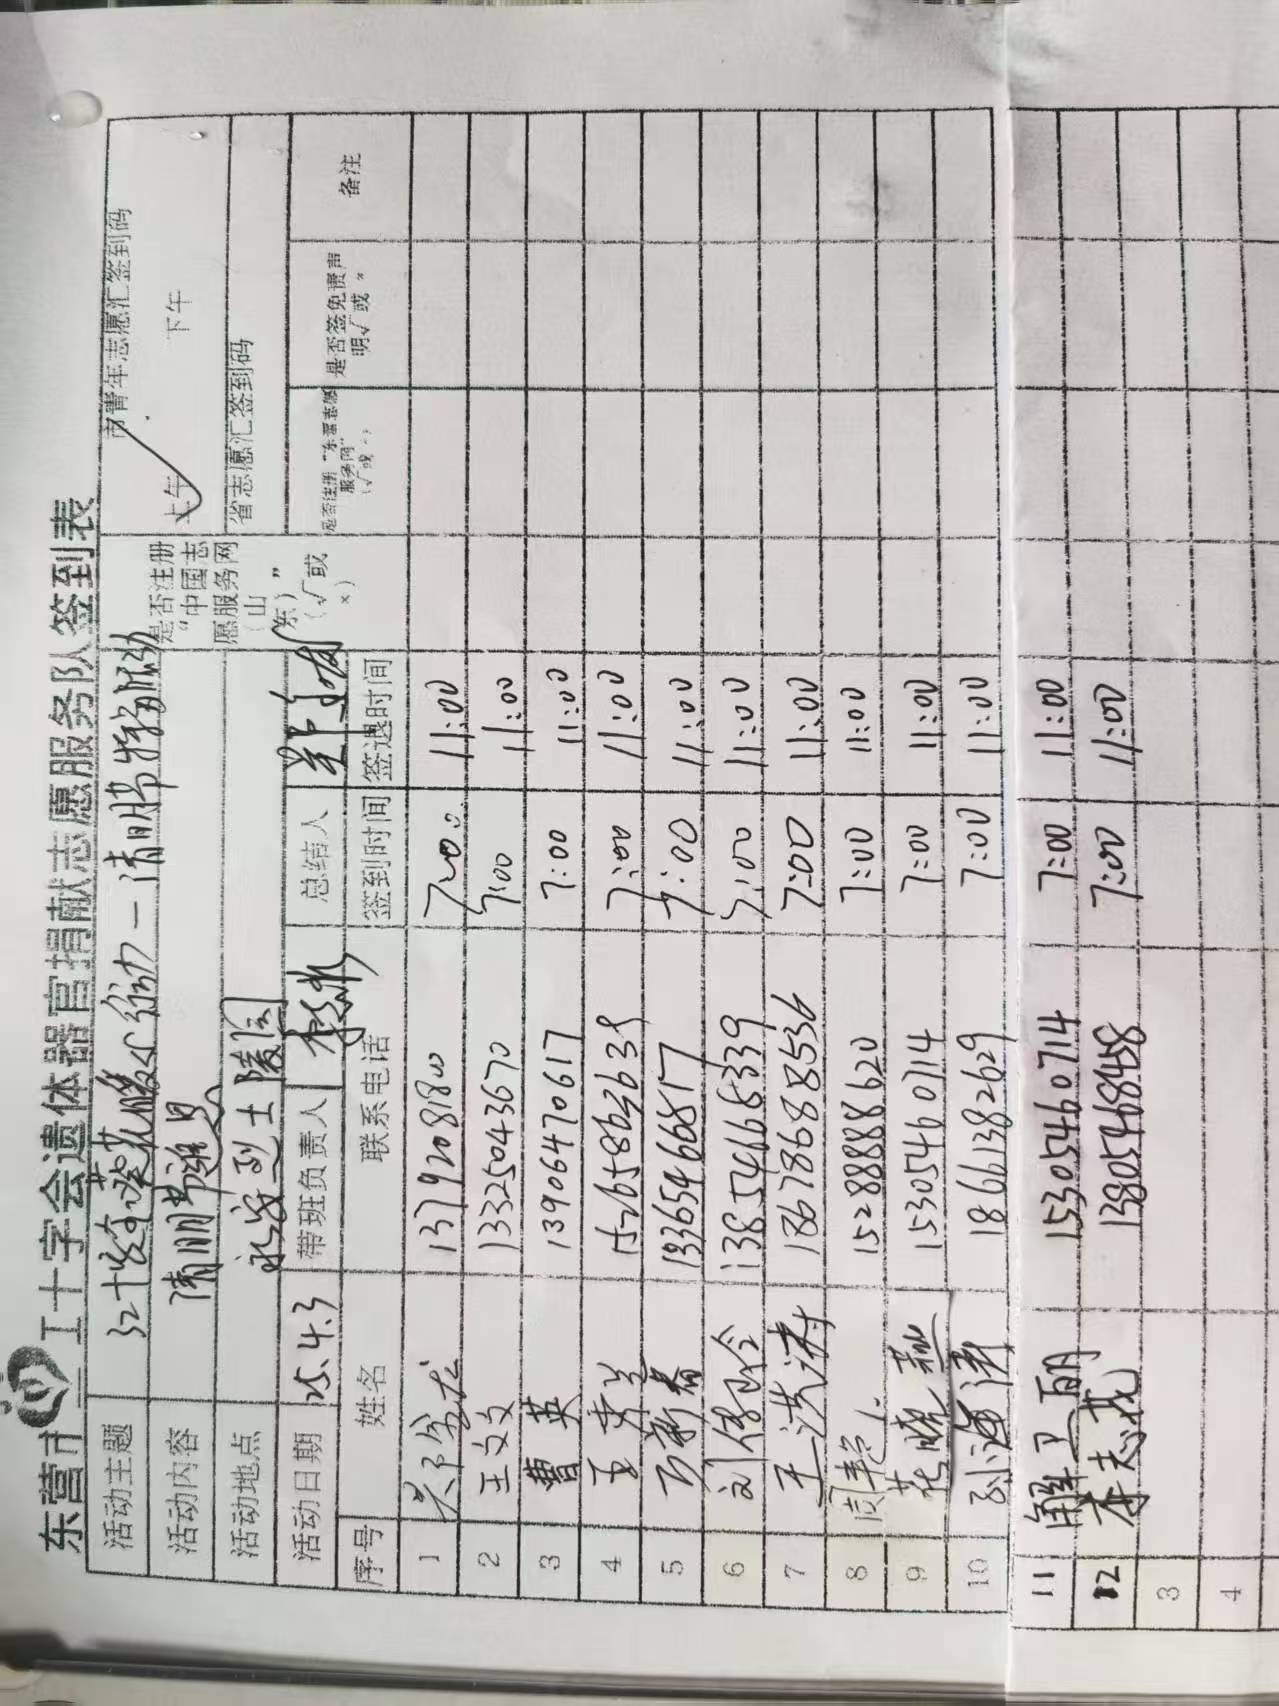 东营市红十字会遗体器官捐献志愿服务队签到表
活动主题 清明节 活动 市青年志愿汇签到码
活动内容 清明节追思 是否注册“中国志愿服务网（山东）”（√或×） 上午 下午
活动地点 永安烈士陵园 省志愿汇签到码
活动日期 25.4.3 带班负责人 总结人
序号 姓名 联系电话 签到时间 签退时间 是否签免责声明√或× 备注
1 7:00 11:00
2 王文文 13325043670 7:00 11:00
3 曹英 13906470617 7:00 11:00
4 7:00 11:00
5 13654666817 7:00 11:00
6 13854668339 7:00 11:00
7 王洪涛 18678688536 7:00 11:00
8 周艳 15288888620 7:00 11:00
9 15305460714 7:00 11:00
10 孙海涛 18661382629 7:00 11:00
11 解卫明 15305460714 7:00 11:00
12 李志茂 13805468458 7:00 11:00
3
4